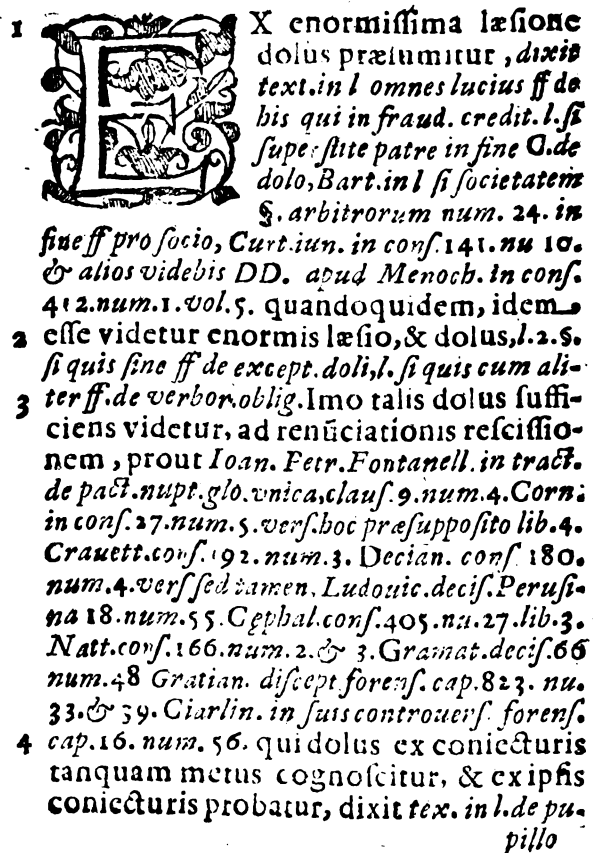 1 EX enormiſſima læſione
dolus præſumitur, dixit
text. in l omnes lucius ff de
his qui in fraud. credit. l. ſi
ſuperſtite patre in fine C. de
dolo, Bart. in l ſi ſocietatem
§. arbitrorum num. 24. in
fine ff pro ſocio, Curt. iun. in conſ. 141. nu 10.
& alios videbis DD. apud Menoch. in conſ.
412. num. 1. vol. 5. quandoquidem, idem
2 eſſe videtur enormis læſio, & dolus, l. 2. §.
ſi quis ſine ff de except. doli, l. ſi quis cum ali-
3 ter ff. de verbor. oblig. Imo talis dolus ſuffi-
ciens videtur, ad renũciationis reſciſſio-
nem, prout Ioan. Petr. Fontanell. in tract.
de pact. nupt. glo. vnica, clauſ. 9. num. 4. Corn.
in conſ. 27. num. 5. verſ. hoc præſuppoſito lib. 4.
Crauett. conſ. 192. num. 3. Decian. conſ 180.
num. 4. verſ ſed tamen, Ludouic. deciſ. Peruſi-
na 18. num. 55. Cęphal. conſ. 405. nu. 27. lib. 3.
Natt. conſ. 166. num. 2. & 3. Gramat. deciſ. 66
num. 48 Gratian. diſcept forenſ. cap. 823. nu.
33. & 39. Ciarlin. in ſuis controuerſ forenſ.
4 cap. 16. num. 56. qui dolus ex coniecturis
tanquam metus cognoſcitur, & ex ipſis
coniecturis probatur, dixit tex. in l. de pu-
pillo